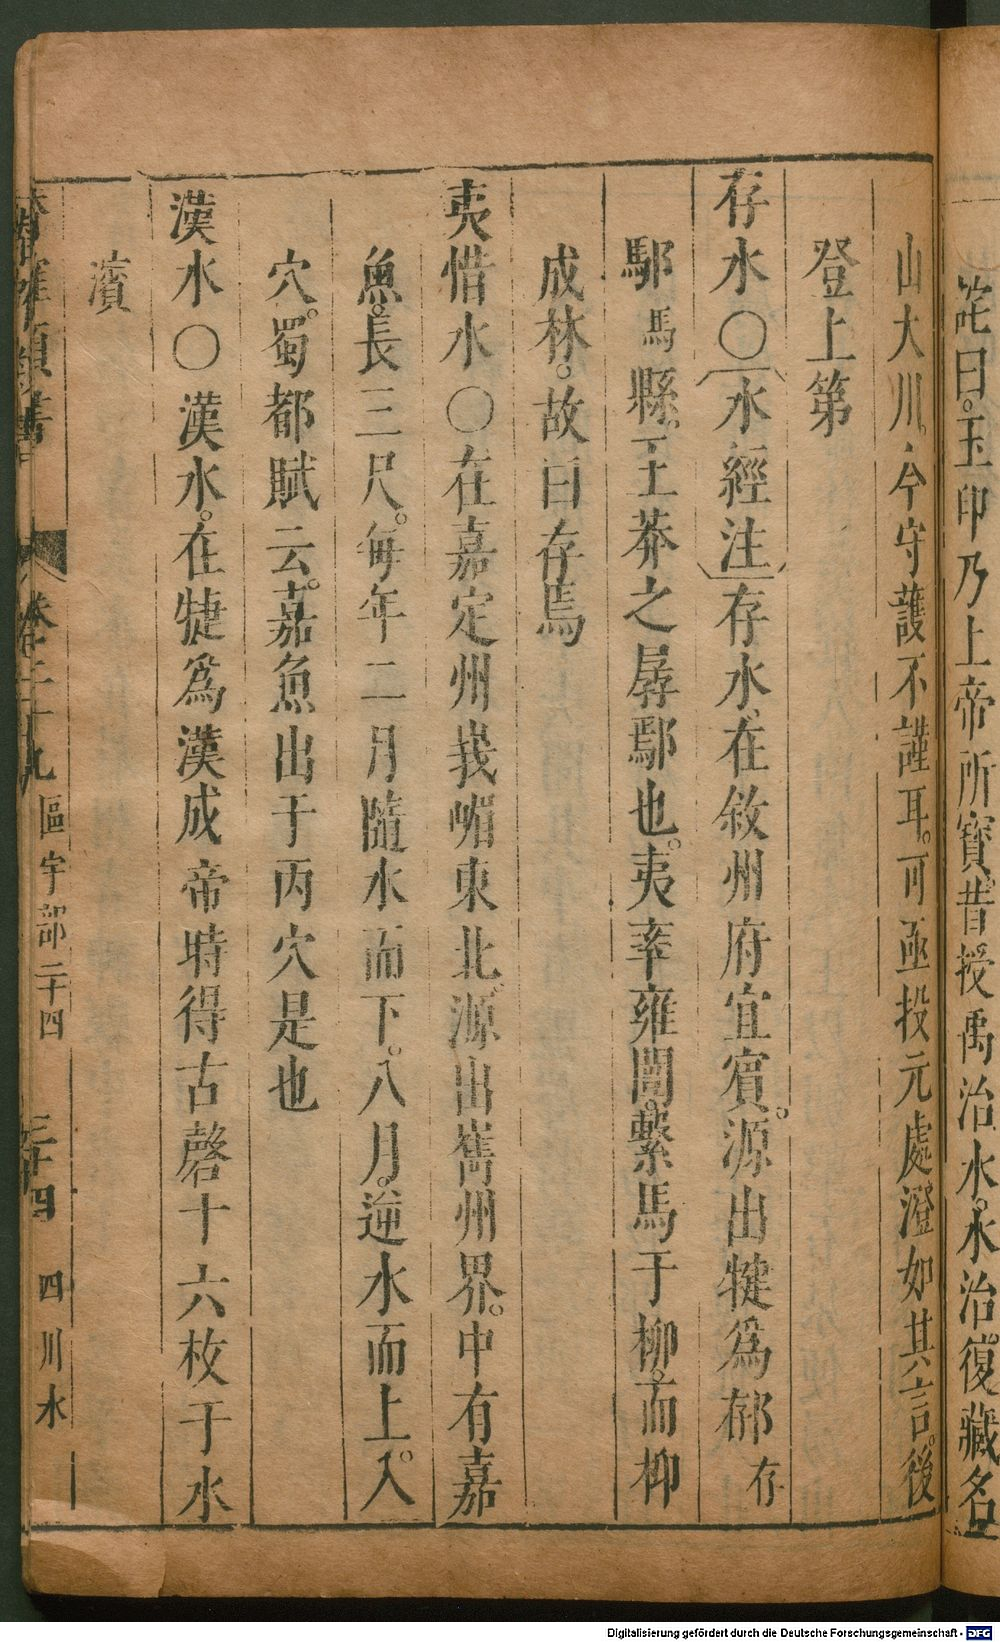 詫曰。玉印乃上帝所寶。昔授禹治水。水治復藏名
山大川。今守護不謹耳。可亟投元處。澄如其言。後
登上第
存水〇〔水經注〕存水、在敘州府宜賓。源出犍爲郁存
鄢馬縣。王莽之孱鄢也。夷率雍闓。繫馬于柳。而枊
成林。故曰存焉
夷惜水〇在嘉定州峩嵋東北。源出巂州界。中有嘉
魚。長三尺。每年二月隨水而下。八月。逆水而上。入
穴。蜀都賦云。嘉魚出于丙穴是也
漢水〇漢水。在犍爲漢成帝時得古磬十六枚于水
濱
潛確類書 卷二十九 區宇部二十四 三十四 四川水
Digitalisierung gefördert durch die Deutsche Forschungsgemeinschaft - DFG